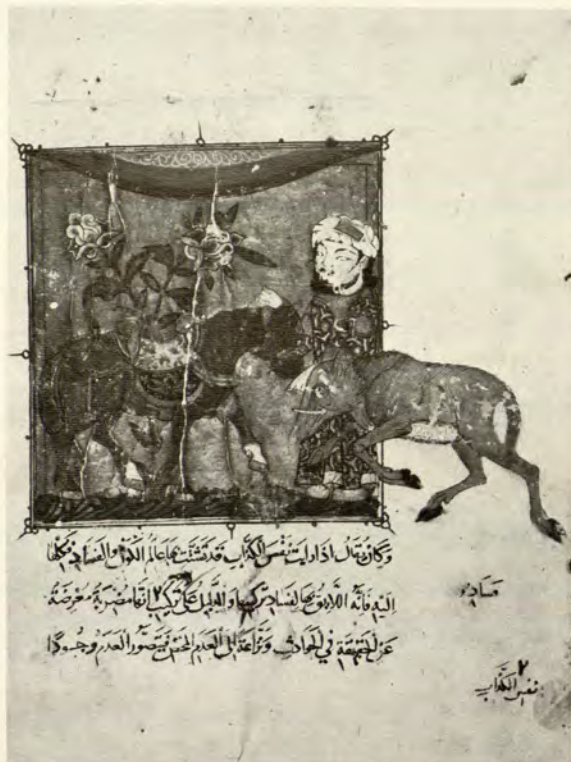 وكان يقال اذا رايت نفس الكذاب قد تشبثت بها عالم الكون والفساد فكلها
اليه فانه اللايق بها لفساد تركيبها والدليل على تركيب انها مضربة معرضة
عن الحقيقة في الحوادث ونزاعة الى العدم المحض فتصور العدم وجودا
فساد
٢
نفس الكذاب